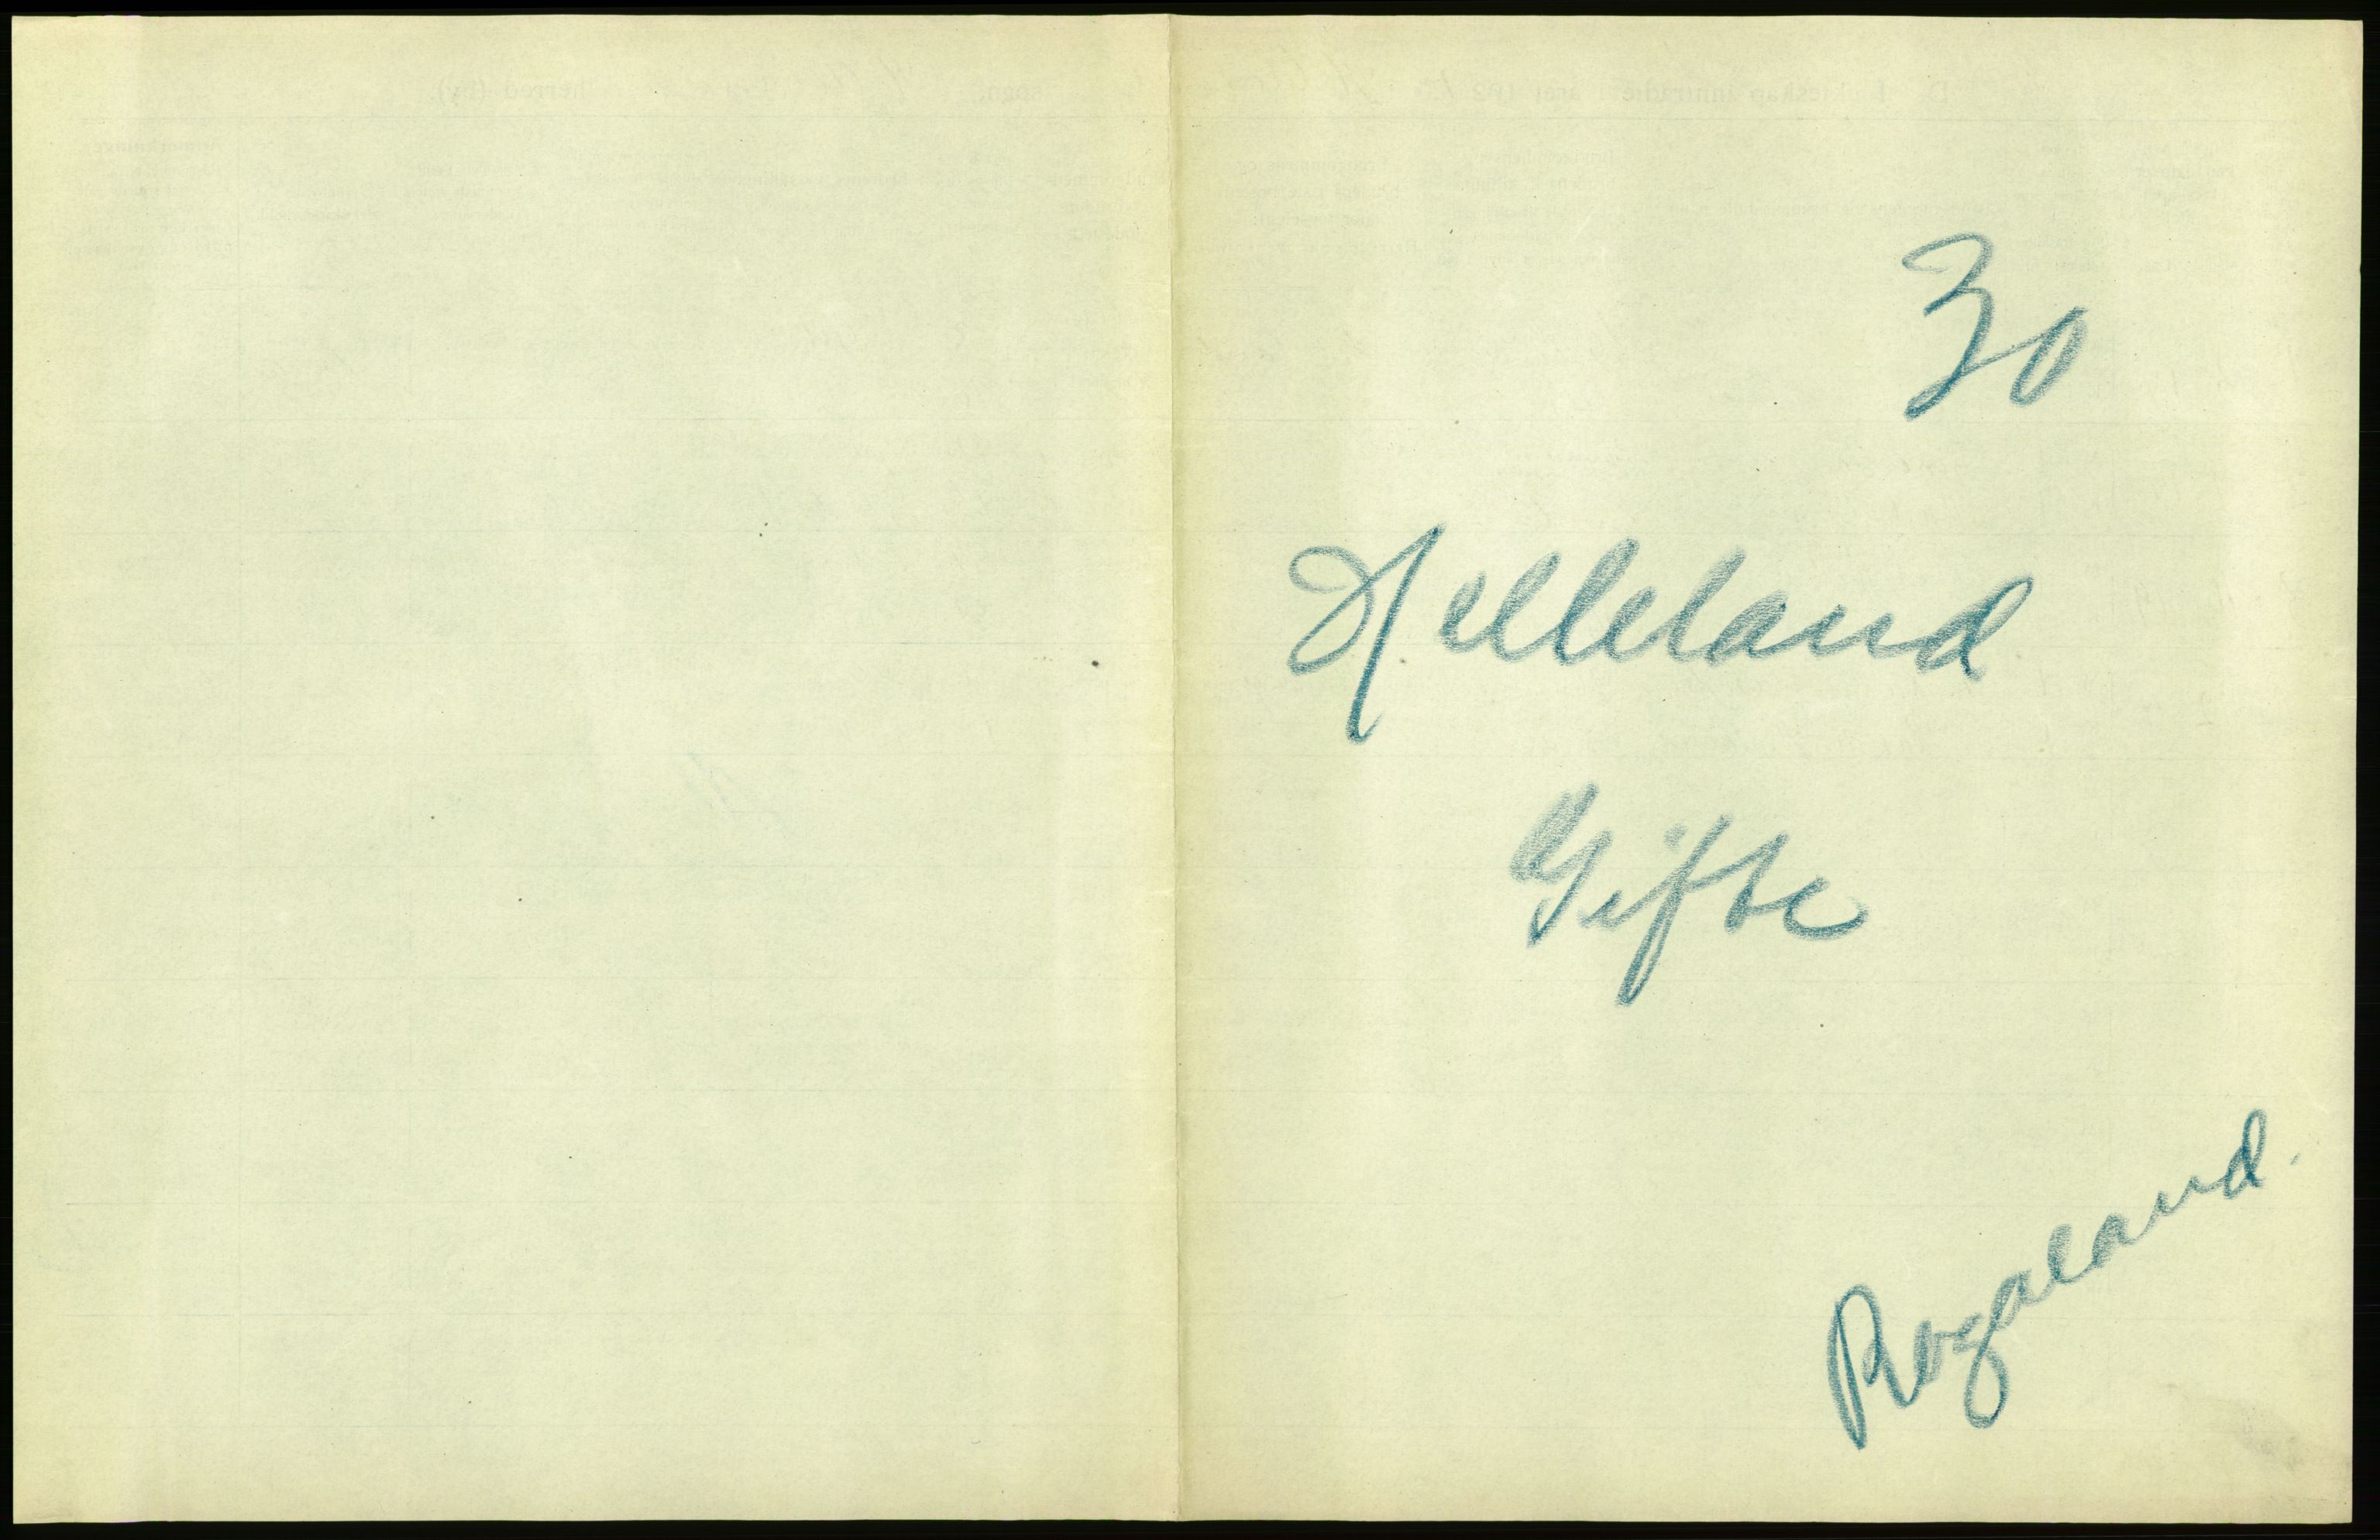 30
Helleland
Gifte
Rogaland.